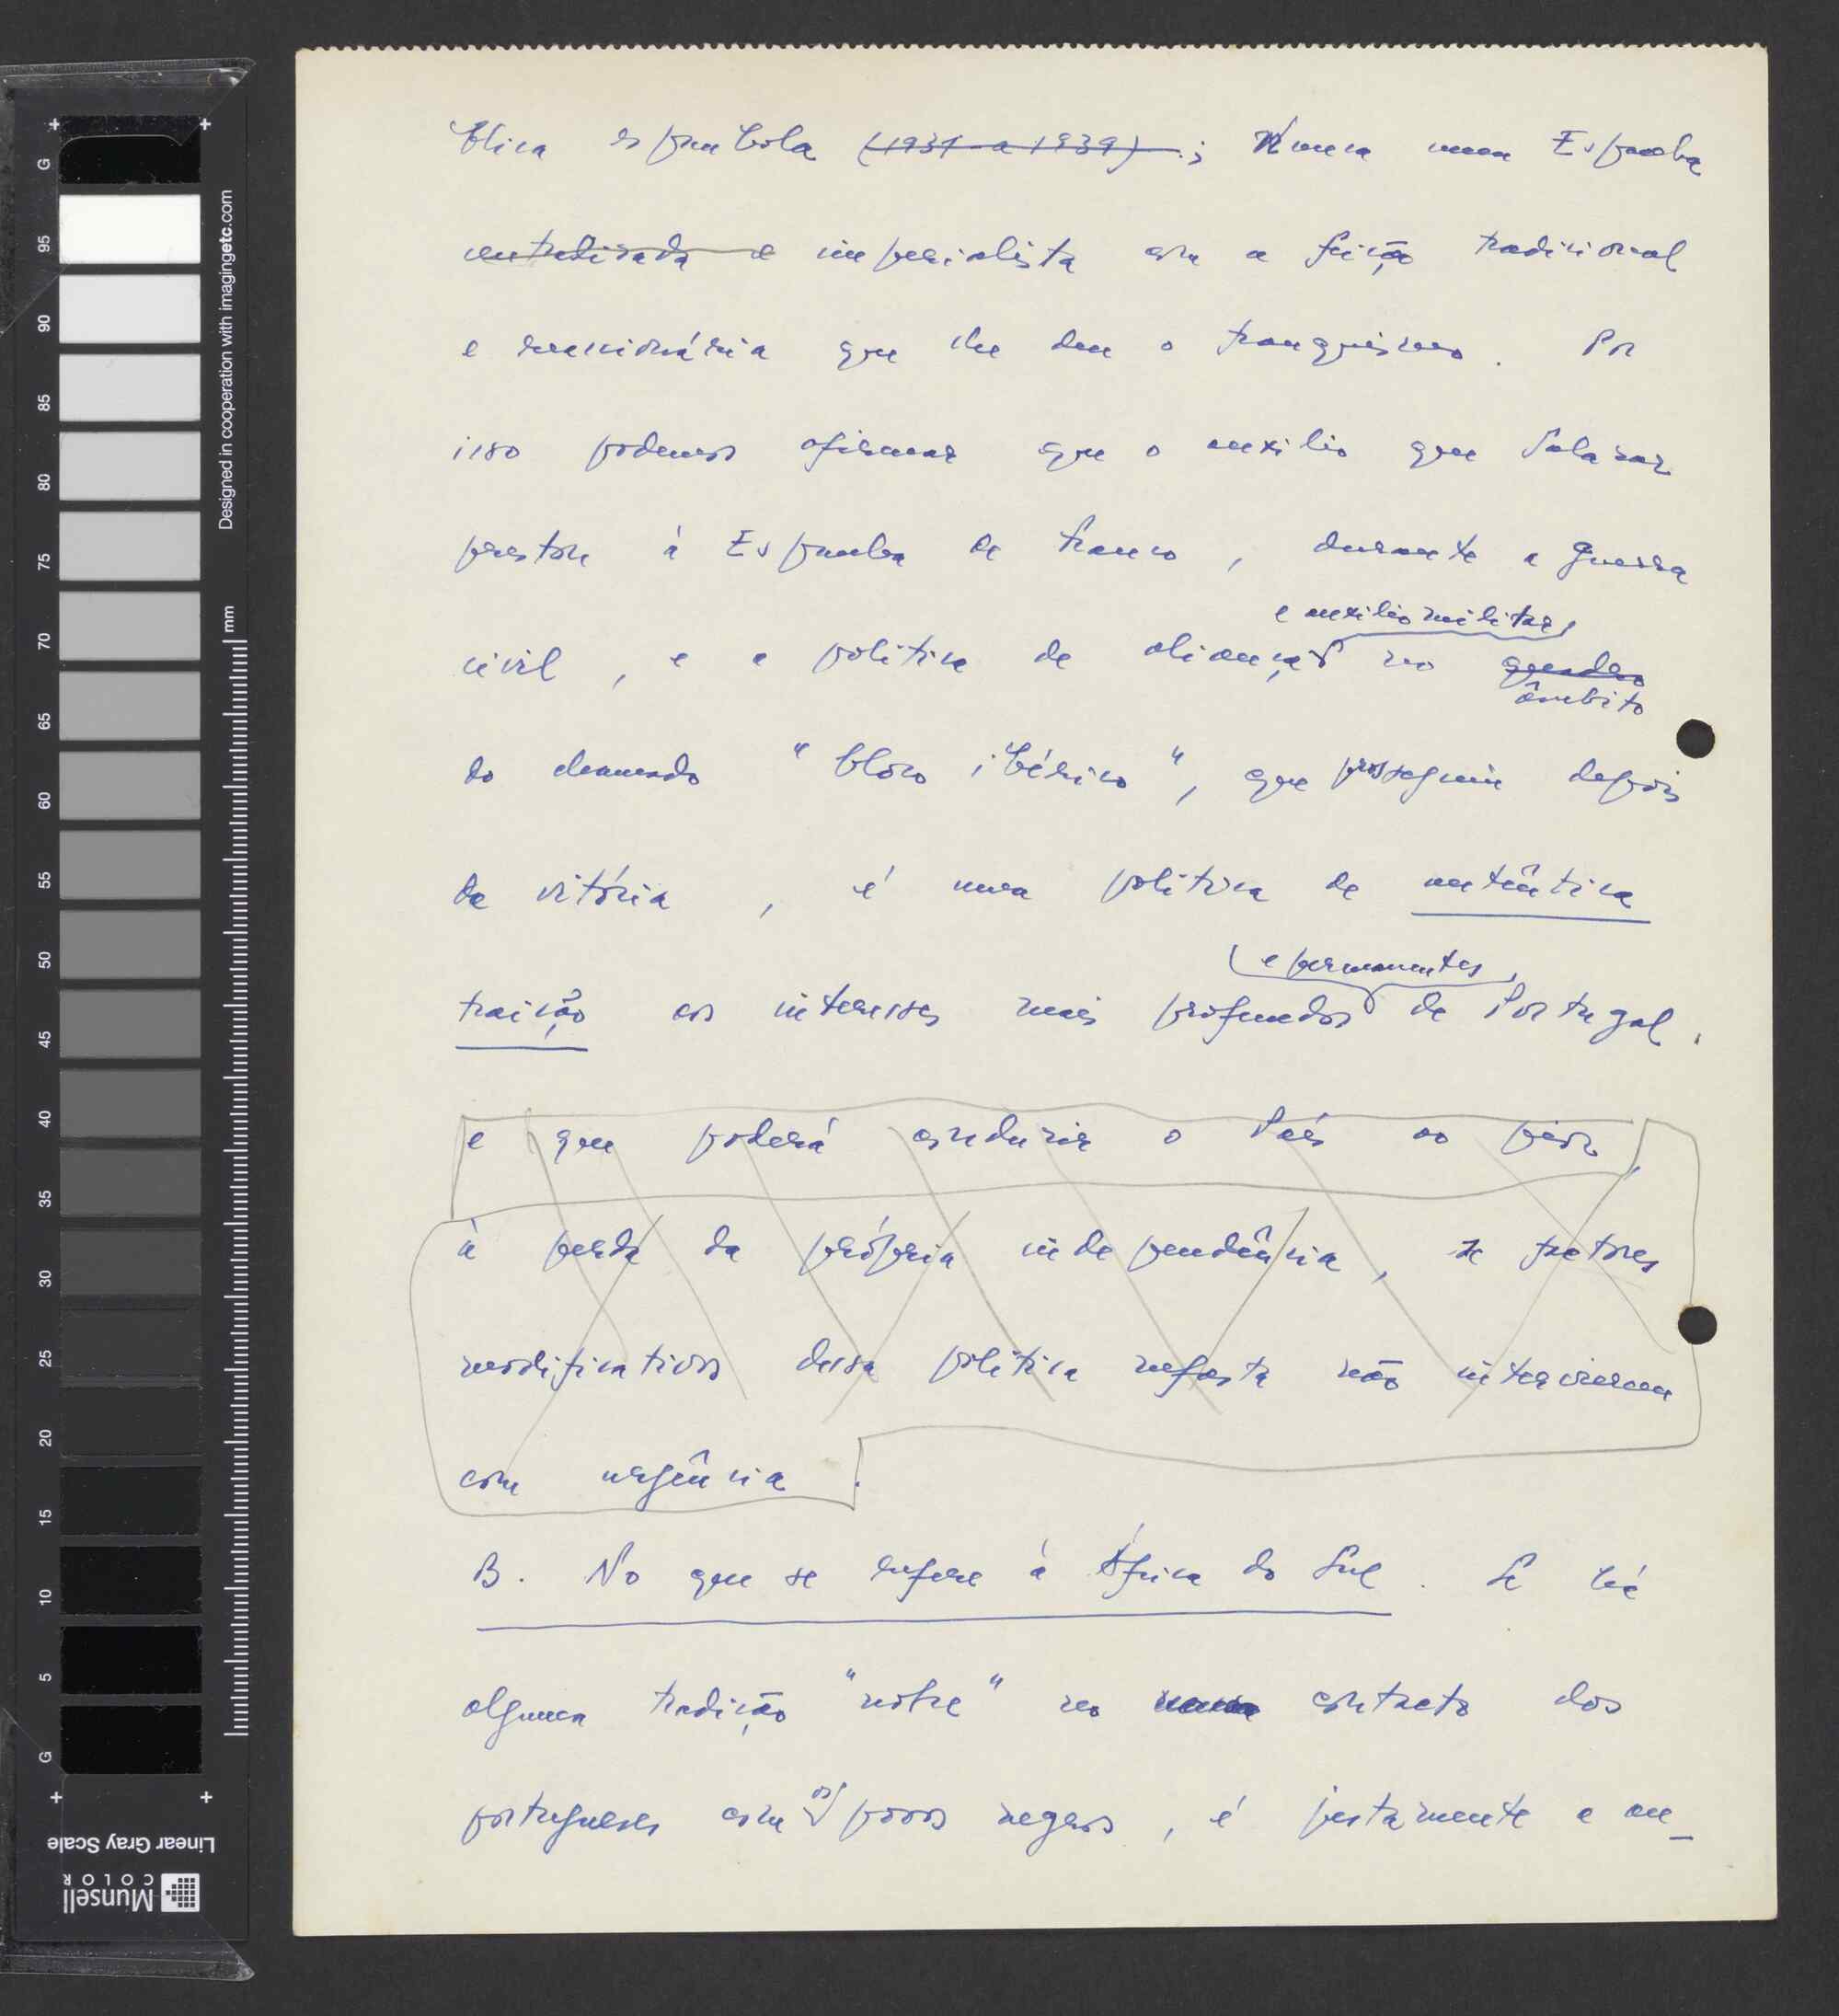 blica espanhola (1931 a 1939); Nunca numa Espanha
centralizada e imperialista com a feição tradicional
e reaccionária que lhe deu o franquismo. Por
isso podemos afirmar que o auxílio que Salazar
prestou à Espanha de Franco, durante a guerra
e auxílio militar,
civil, e a política de aliança no quadro
âmbito
do chamado "bloco ibérico", que prosseguiu depois
da vitória, é uma política de autêntica
e permanentes,
traição aos interesses mais profundos de Portugal.
e que poderá conduzir o País ao pior,
à perda da própria independência, se factores
modificativos dessa política nefasta não intervierem
com urgência.
B. No que se refere à África do Sul. Se há
alguma tradição "nobre" no contacto dos
os
portugueses com povos negros, é justamente a au_
G
95
90
85
80
75
70
65
60
55
50
45
40
35
30
25
20
15
10
5
G
Designed in cooperation with imagingetc.com
mm
Linear Gray Scale
Munsell
COLOR